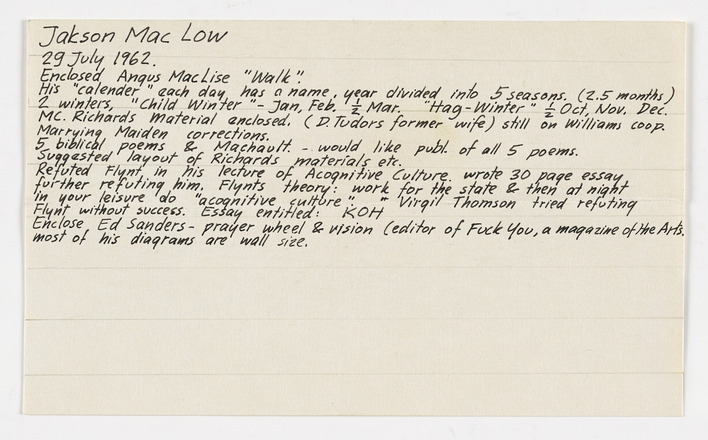 Jakson Mac Low
29 July 1962.
Enclosed Angus MacLise "Walk".
His "calender" each day has a name, year divided into 5 seasons. (2.5 months)
2 winters, "Child Winter" - Jan, Feb. ½ Mar. "Hag-Winter" ½ Oct, Nov. Dec.
MC. Richards material anclosed. (D.Tudors former wife) still on Williams coop.
Marrying Maiden corrections.
5 biblical poems & Machault. - would like publ. of all 5 poems.
Suggested layout of Richards materials etc.
Refuted Flynt in his lecture of Acognitive Culture. wrote 30 page essay
further refuting him. Flynts theory: work for the state & then at night
in your leisure do "acognitive culture". " Virgil Thomson tried refuting
Flynt without success. Essay entitled: KOH
Enclose Ed Sanders - prayer wheel & vision (editor of Fuck You, a magazine of the Arts.
most of his diagrams are wall size.